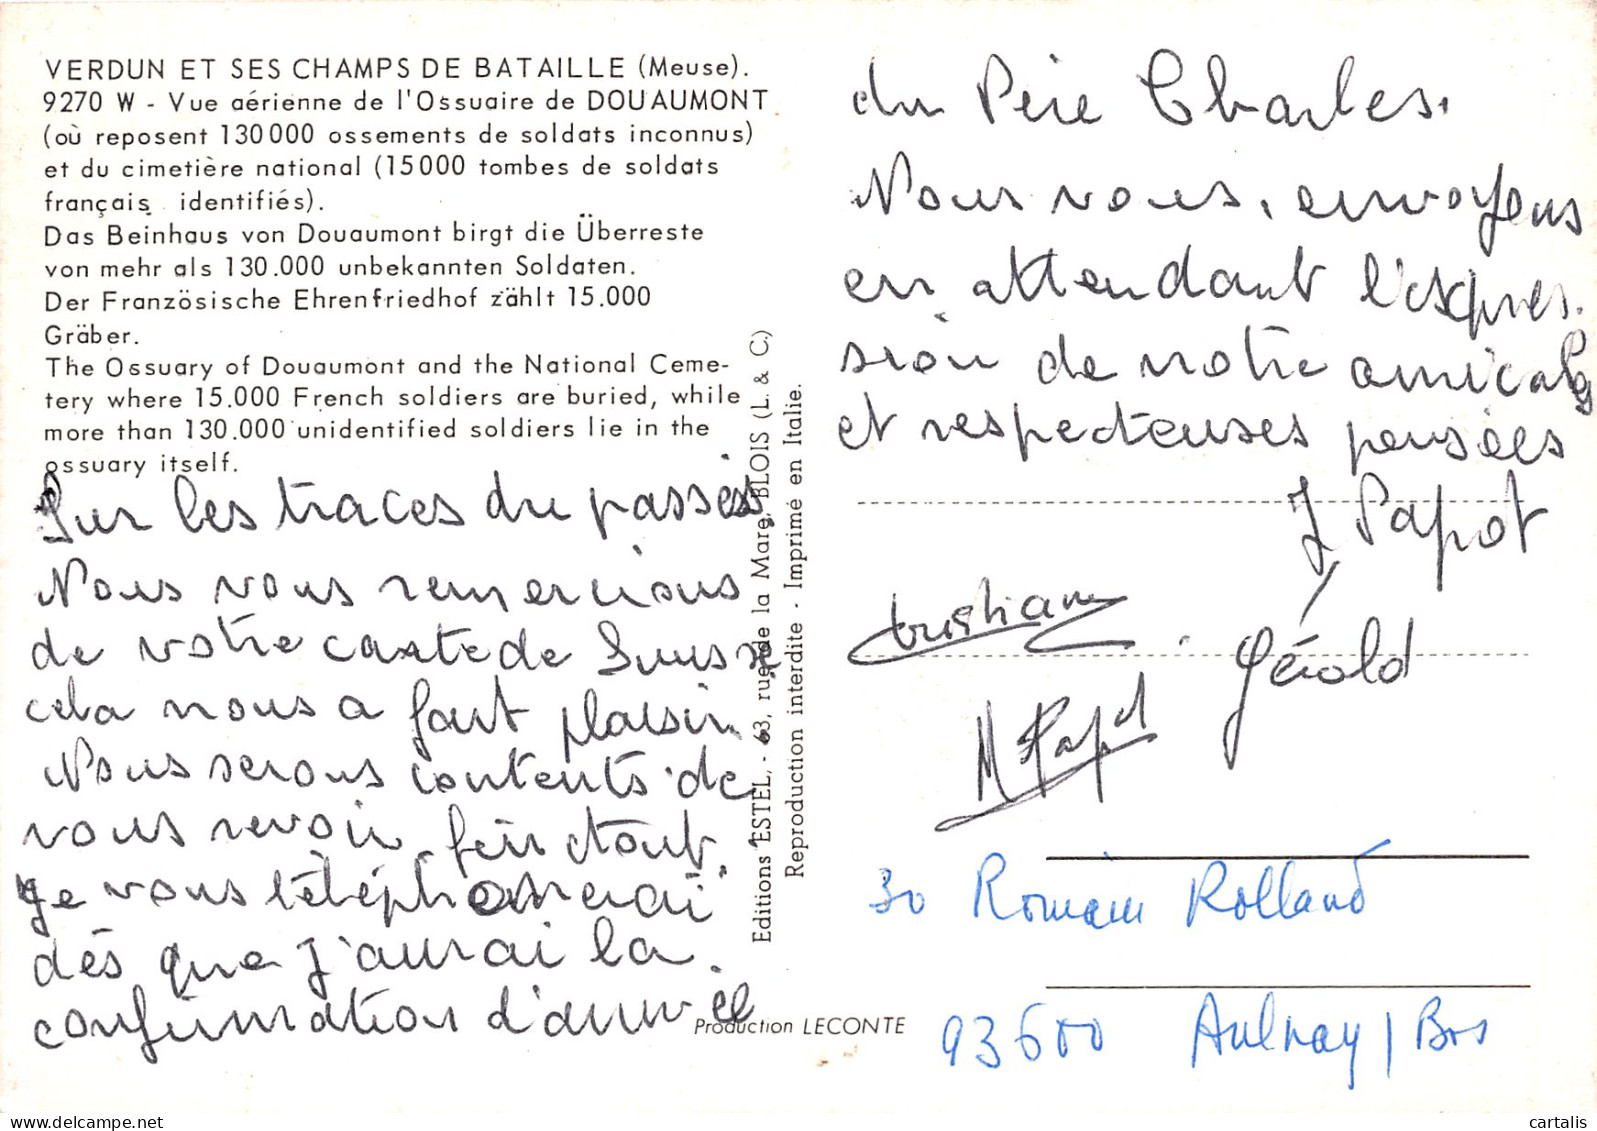 VERDUN ET SES CHAMPS DE BATAILLE (Meuse).
9270 W - Vue aérienne de l'Ossuaire de DOUAUMONT
(où reposent 130000 ossements de soldats inconnus)
et du cimetière national (15000 tombes de soldats
français identifiés).
Das Beinhaus von Douaumont birgt die Überreste
von mehr als 130.000 unbekannten Soldaten.
Der Französische Ehrenfriedhof zählt 15.000
Gräber.
The Ossuary of Douaumont and the National Ceme-
tery where 15.000 French soldiers are buried, while
more than 130.000 unidentified soldiers lie in the
ossuary itself.
Sur les traces du passés
Nous vous remercions
de votre carte de Suisse
cela nous a fait plaisir
Nous serons contents de
vous revoir fin Août.
Je vous téléphonerai
dés que j'aurai la
confirmation d'arrivée
Editions ESTEL, - 63, rue de la Mare, BLOIS (L. & C.)
Reproduction interdite - Imprimé en Italie.
Production LECONTE
du Père Charles.
Nous vous, envoyons
en attendant l'expres.
sion de notre amicales
et respecteuses pensées
J Papot
Christiane
Gérold
M Papot
30 Romain Rolland
93600 Aulnay / Bois
cartalis